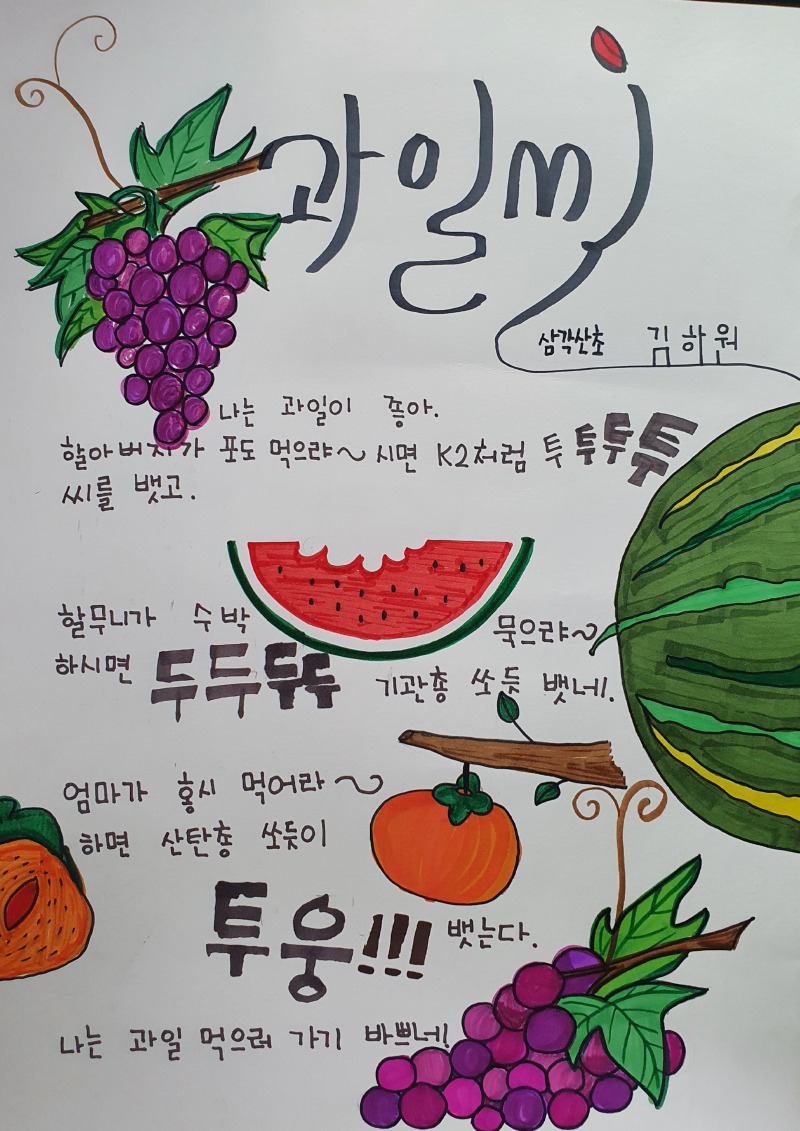 과일씨
삼각산초 김하원
나는 과일이 좋아.
할아버지가 포도 먹으랴~ 시면 K2처럼 투투투툭
씨를 뱃고.
할무니가 수박 묵으랴~
하시면 두두두두 기관총 쏘듯 뱃네.
엄마가 홍시 먹어라~
하면 산탄총 쏘듯이
투웅!!! 뱃는다.
나는 과일 먹으러 가기 바쁘네!